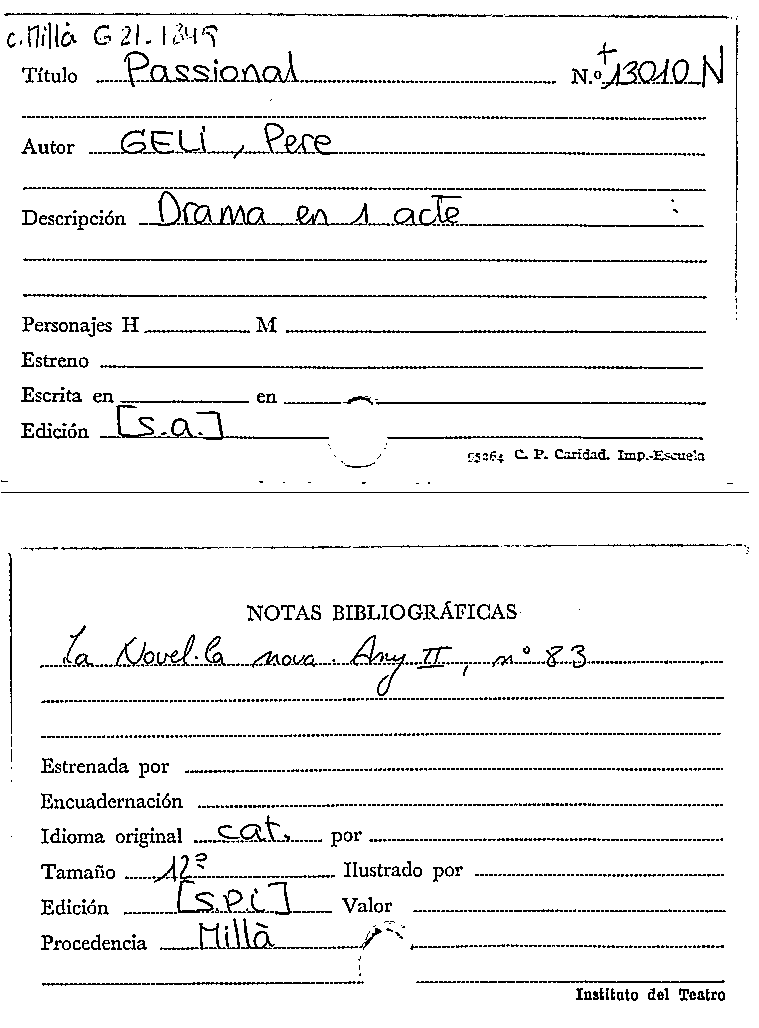 c. Millà G 21-1849
Título Passional N.º 13010 N
Autor GELI, Pere
Descripción Drama en 1 acte
Personajes H M
Estreno
Escrita en en
Edición [s.a.]
C. P. Caridad. Imp.-Escuela
NOTAS BIBLIOGRÁFICAS
La Novel·la nova. Any II, nº 83
Estrenada por
Encuadernación
Idioma original cat. por
Tamaño 12º Ilustrado por
Edición [S.P.i] Valor
Procedencia Millà
Instituto del Teatro